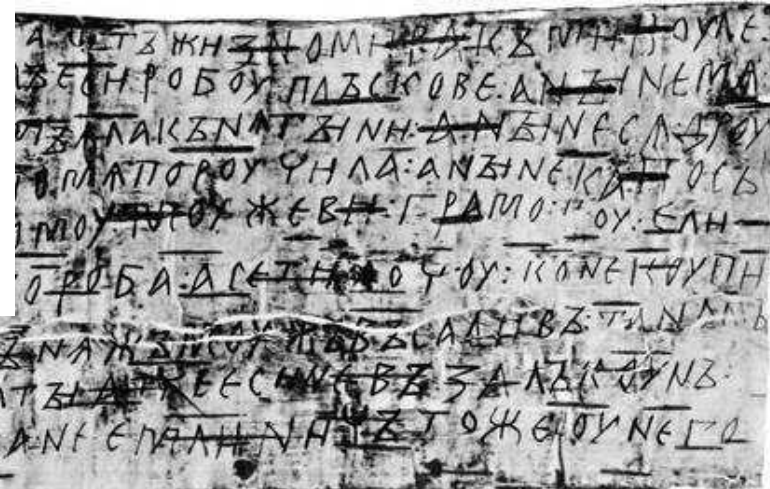 А : ѾЖИЗНОМИРА КЪ МИКОУЛЕ :
ЪЕСИ РОБОУ ПЛЪСКОВЕ : А НЪІНЕ МѦ
ОМЪ ѦЛА КЪНѦГЪІНИ : А НЪІНЕ СѦ ДРОУ
ПО МѦ ПОРОУЧИЛА : А НЪІНЕ КА ПОСЪ
ОМОУ МОУЖЕВИ : ГРАМОТОУ : ЕЛИ
О РОБА : А СЕ ТИ ХОЧОУ : КОНЕ КОУПИ
ЪНѦЖЪ МОУЖЪ ВЪСАДИВЪ : ТА НА СЪ
ТЪІ АТЧЕ ЕСИ НЕ ВЪЗАЛЪ КОУНЪ :
А НЕ ЕМЛИ НИЧЪТОЖЕ ОУ НЕГО